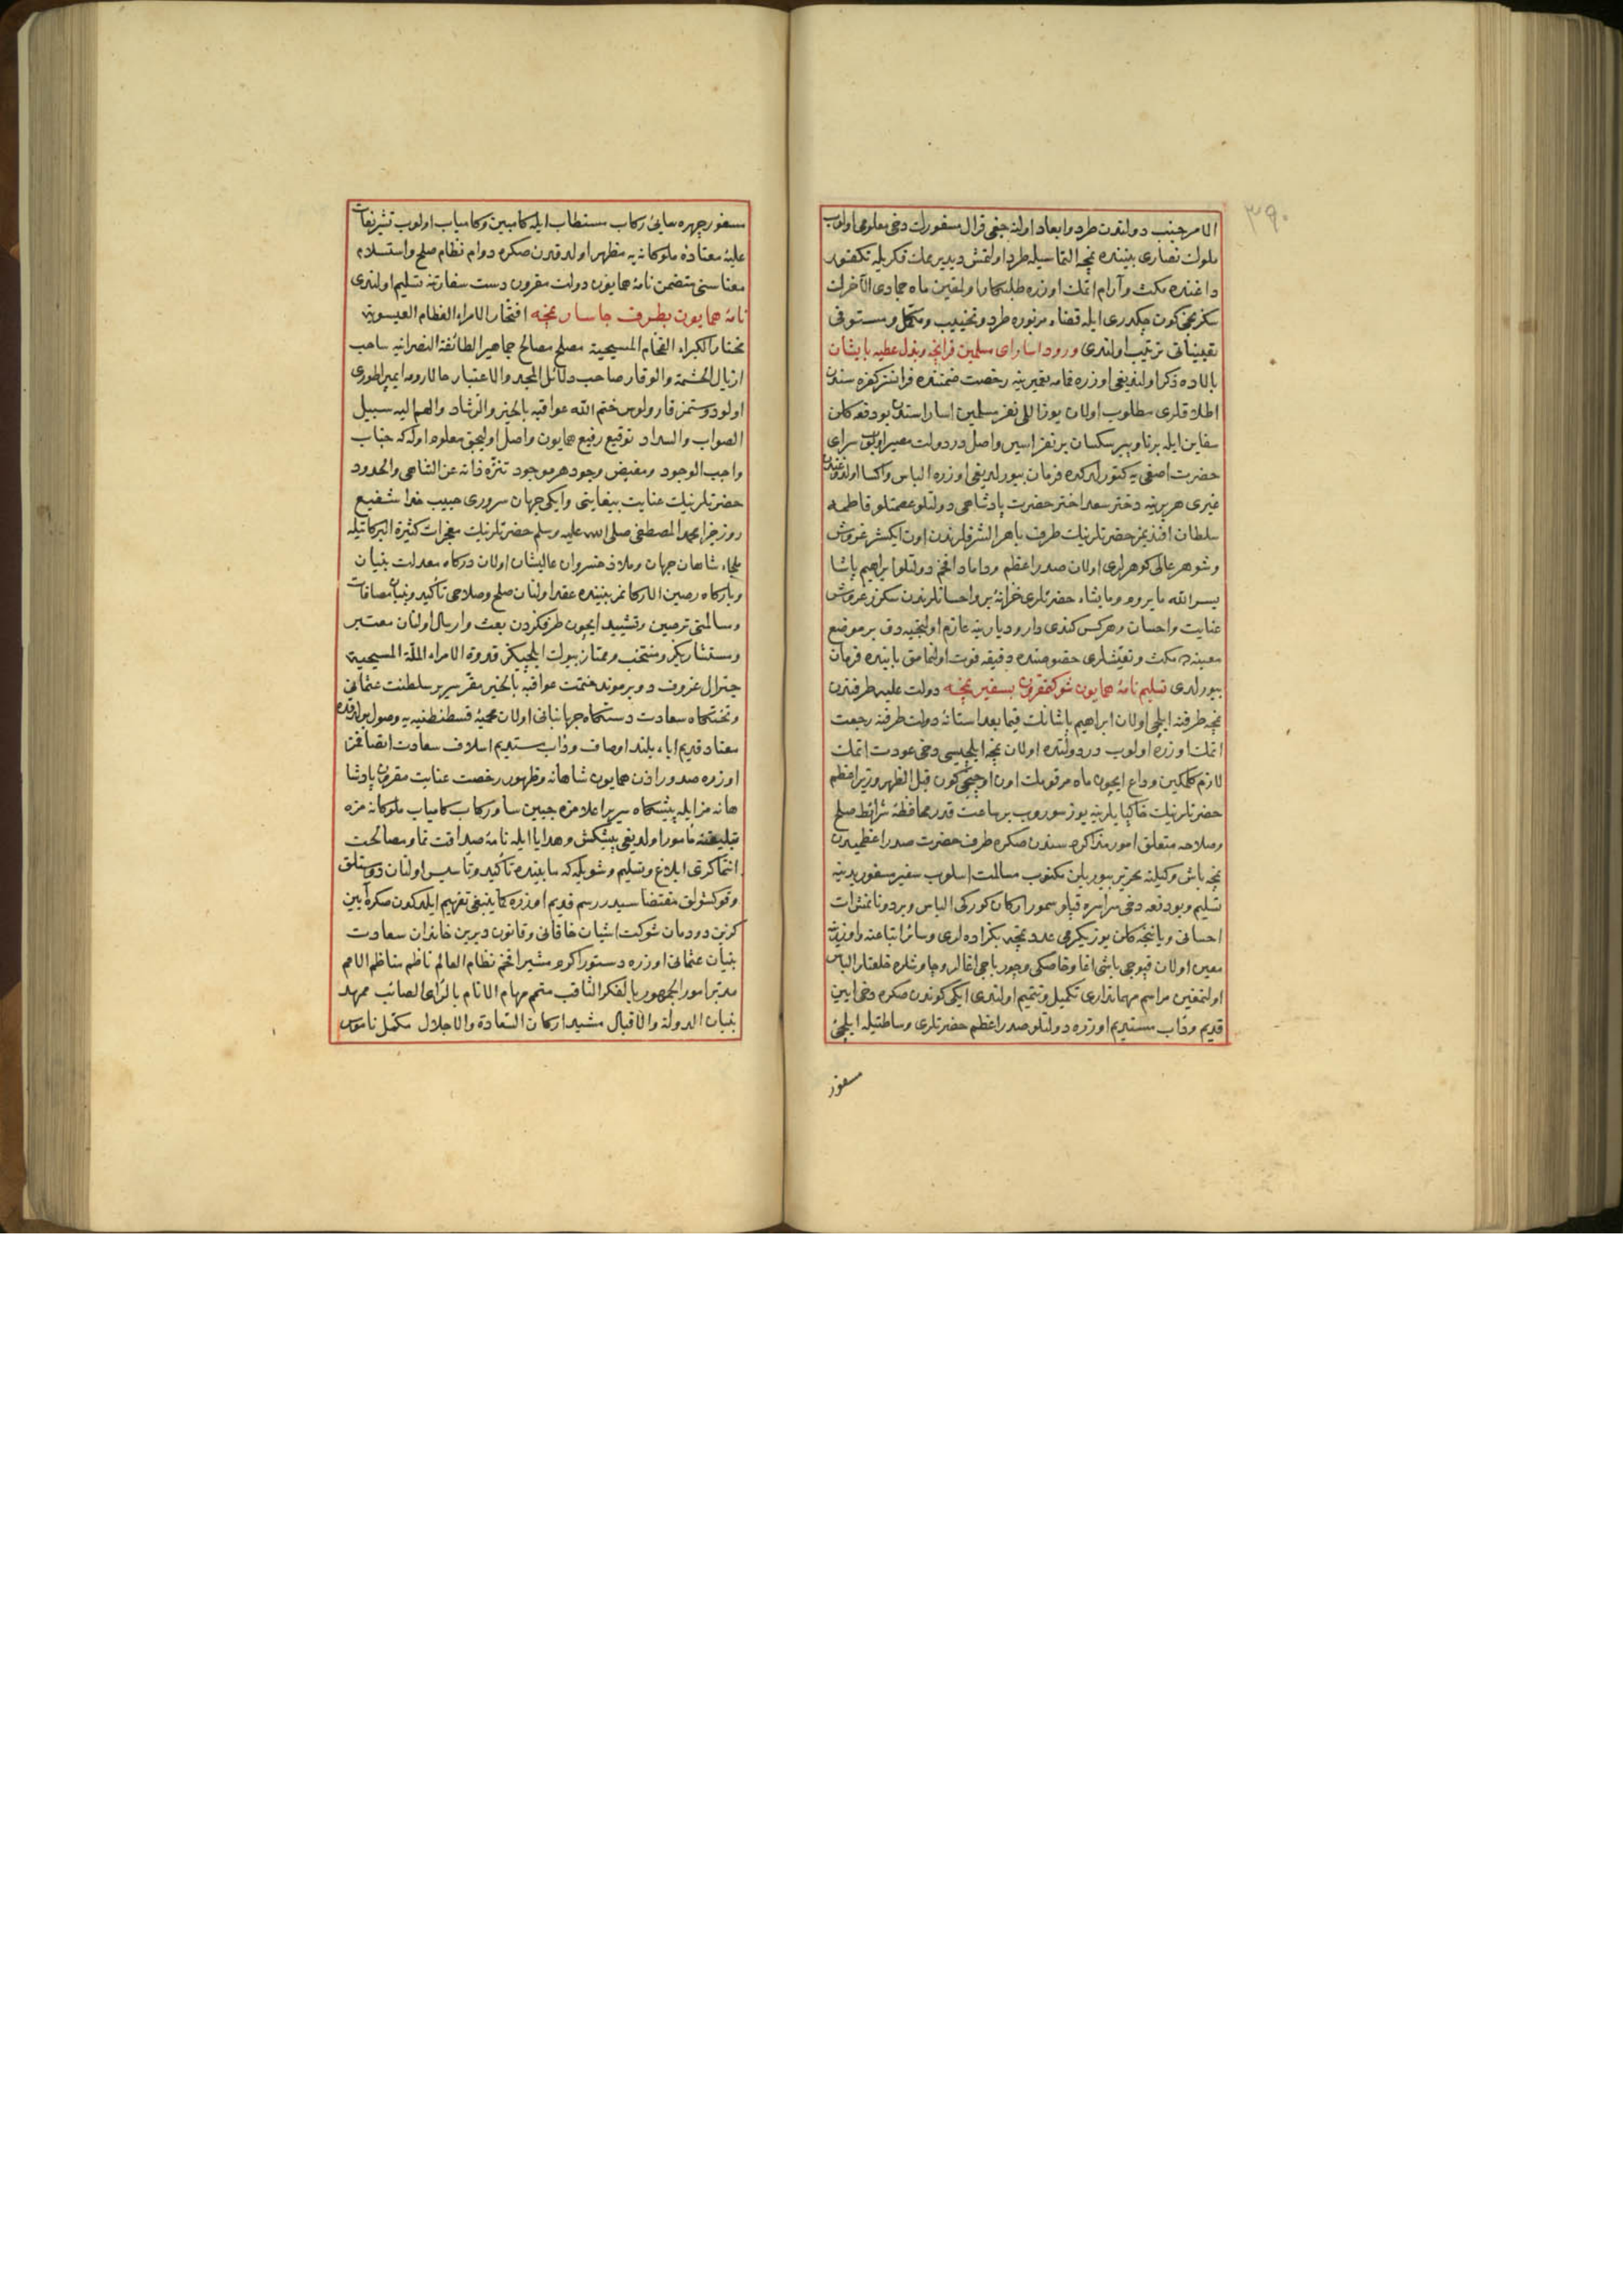 ٣٩٠
الامر جنب دولتدن طرد و ابعاد اولنه جغی قرال مسفورك دخی معلومی اولوب
ملوك نصاری بیننده نمچه التماسیله طرد اولنمش دیدیرمك فكریله تكفور
داغنده مكث و آرام اتمك اوزره طلبكار اولمغین ماه جمادی الآخرك
سكزنجی كون چكدری ایله قضاء مزبوره طرد و تخییب و مكمل و مستوفی
تعییناتی ترتیب اولندی ورود اسارای مسلمین فرانچه و بذل عطیه بایشان
بالاده ذكر اولندیغی اوزره قامه تعمیرینه رخصت ضمننده فرانسز كفره سندن
اطلاقلری مطلوب اولان یوز اللی نفر مسلمین اسار استدن بودفعه كلن
سفاین ایله برنا و پیر سكسان بر نفر اسیر واصل در دولت مصیر اولوب سرای
حضرت اصفی یه كتورلدكده فرمان بیورلدیغی اوزره الباس و اكسا اولندقدن
غیری هر برینه دختر سعد اختر حضرت پادشاهی دولتلو عصمتلو فاطمه
سلطان افندیمز حضرتلرینك طرف باهر الشرفلرندن اون ایكیشر غروش
و شوهر عالی كوهرلری اولان صدر اعظم و داماد افخم دولتلو ابراهیم پاشا
یسر الله ما یروم و ما یشاء حضرتلری خزانهٔ بر و احسانلرندن سكزر غروش
عنایت و احسان و هركس كندی دار و دیارینه عازم اولنجیه دق بر موضع
معینده مكث و تعیشلری خصوصنده دقیقه فوت اولنمامق بابنده فرمان
بیورلدی تسلیم نامهٔ همایون شوكتمقرون بسفیر نمچه دولت علیه طرفندن
نمچه طرفنه ایلچی اولان ابراهیم پاشانك فیما بعد استانهٔ دولت طرفنه رجعت
اتمك اوزره اولوب در دولتده اولان نمچه ایلچیسی دخی عودت اتمك
لازم كلمكین وداع ایچون ماه مرقومك اون اوچنجی كون قبل الظهر وزیر اعظم
حضرتلرینك خاكپایلرینه یوز سوروب بر ساعت قدر محافظهٔ شرائط صلح
و صلاحه متعلق امور مذاكره سندن صكره طرف حضرت صدر اعظمیدن
نمچه باش وكیلنه تحریر بیوریلن مكتوب مسالمت اسلوب سفیر مسفور یدینه
تسلیم و بودفعه دخی سراسره قپلو سمور اركان كوركی الباس و بر دونانمش ات
احسانی و یاننجه كلن یوز یكرمی عدد نمچه بكزاده لری و سائر اتباعنه و اوزرینه
معین اولان قپوجی باشی اغا و خاصكی و چورباجی اغالر و چاوشلره خلعتلر الباس
اولنمغین مراسم مهمانداری تكمیل و تتمیم اولندی ایكی كوندن صكره دخی ایین
قدیم و داب مستدیم اوزره دولتلو صدر اعظم حضرتلری وساطتیله ایلچیٔ
مسفور
مسفور چهره سایٔ ركاب مستطاب ایله كامبین و كامیاب اولوب تشریفات
علیهٔ معتادهٔ ملوكانه یه مظهر اولدقدن صكره دوام نظام صلح و استسلام
معناسنی متضمن نامهٔ همایون دولت مقرون دست سفارتنه تسلیم اولندی
نامهٔ همایون بطرف جاسار نمچه افتخار الامراء العظام العیسویه
مختار الكبراء الفخام المسیحیة مصلح مصالح جماهیر الطائفة النصرانیه ساحب
اذیال الحشمة والوقار صاحب دلائل المجد والاعتبار حالا روما ایمپراطوری
اولو دوستمز قارولوس ختم الله عواقبه بالخیر والرشاد والهم الیه سبیل
الصواب والسداد توقیع رفیع همایون واصل اولیجق معلوم اوله كه جناب
واجب الوجود و مفیض وجود هر موجود تنزه ذاته عن التناهی والحدود
حضرتلرینك عنایت بیغایتی و ایكی جهان سروری حبیب خدا شفیع
روز جزا محمد المصطفی صلی الله علیه وسلم حضرتلرینك معجزات كثیرة البركاتیله
ملجاء شاهان جهان و ملاذ خسروان عالیشان اولان درگاه معدلت بنیان
و بارگاه رصین الاركانمز بیننده عقد اولنان صلح و صلاحی تأكید و بنیان مصافات
و سالمتی ترصین و تشیید ایچون طرفكزدن بعث و ارسال اولنان معتبر
و مستشاریكز و منتخب و ممتاز بیوك ایلچیكز قدوة الامراء الملة المسیحیة
جنرال غروف دو ویرموند ختمت عواقبه بالخیر مقر سریر سلطنت عثمانی
و تختگاه سعادت دستگاه جهانبانی اولان محمیهٔ قسطنطنیه یه وصول بولدقده
معتاد قدیم اباء بلند اوصاف و داب مستدیم اسلاف سعادت اتصافمز
اوزره صدور اذن همایون شاهانه و ظهور رخصت عنایت مقرون پادشا
هانه مز ایله پیشگاه سریر اعلامزه جبین سا و ركاب كامیاب ملوكانه مزه
تبلیغنه مأمور اولدیغی پیشكش و هدایا ایله نامهٔ صداقت نما و مصالحت
انتماكزی ابلاغ و تسلیم و شویله كه مابینده تأكید و تأسیس اولنان دوستلق
و قوكشولق مقتضاسیدر رسم قدیم اوزره كما ینبغی تفهیم ایلدكدن صكره آیین
كزین دودمان شوكت اشیان خاقانی و قانون دیرین خاندان سعادت
بنیان عثمانی اوزره دستور اكرم مشیر افخم نظام العالم ناظم مناظم الامم
مدبر امور الجمهور بالفكر الثاقب متمم مهام الانام بالرأی الصائب ممهد
بنیان الدولة والاقبال مشید اركان السعادة والاجلال مكمل ناموس